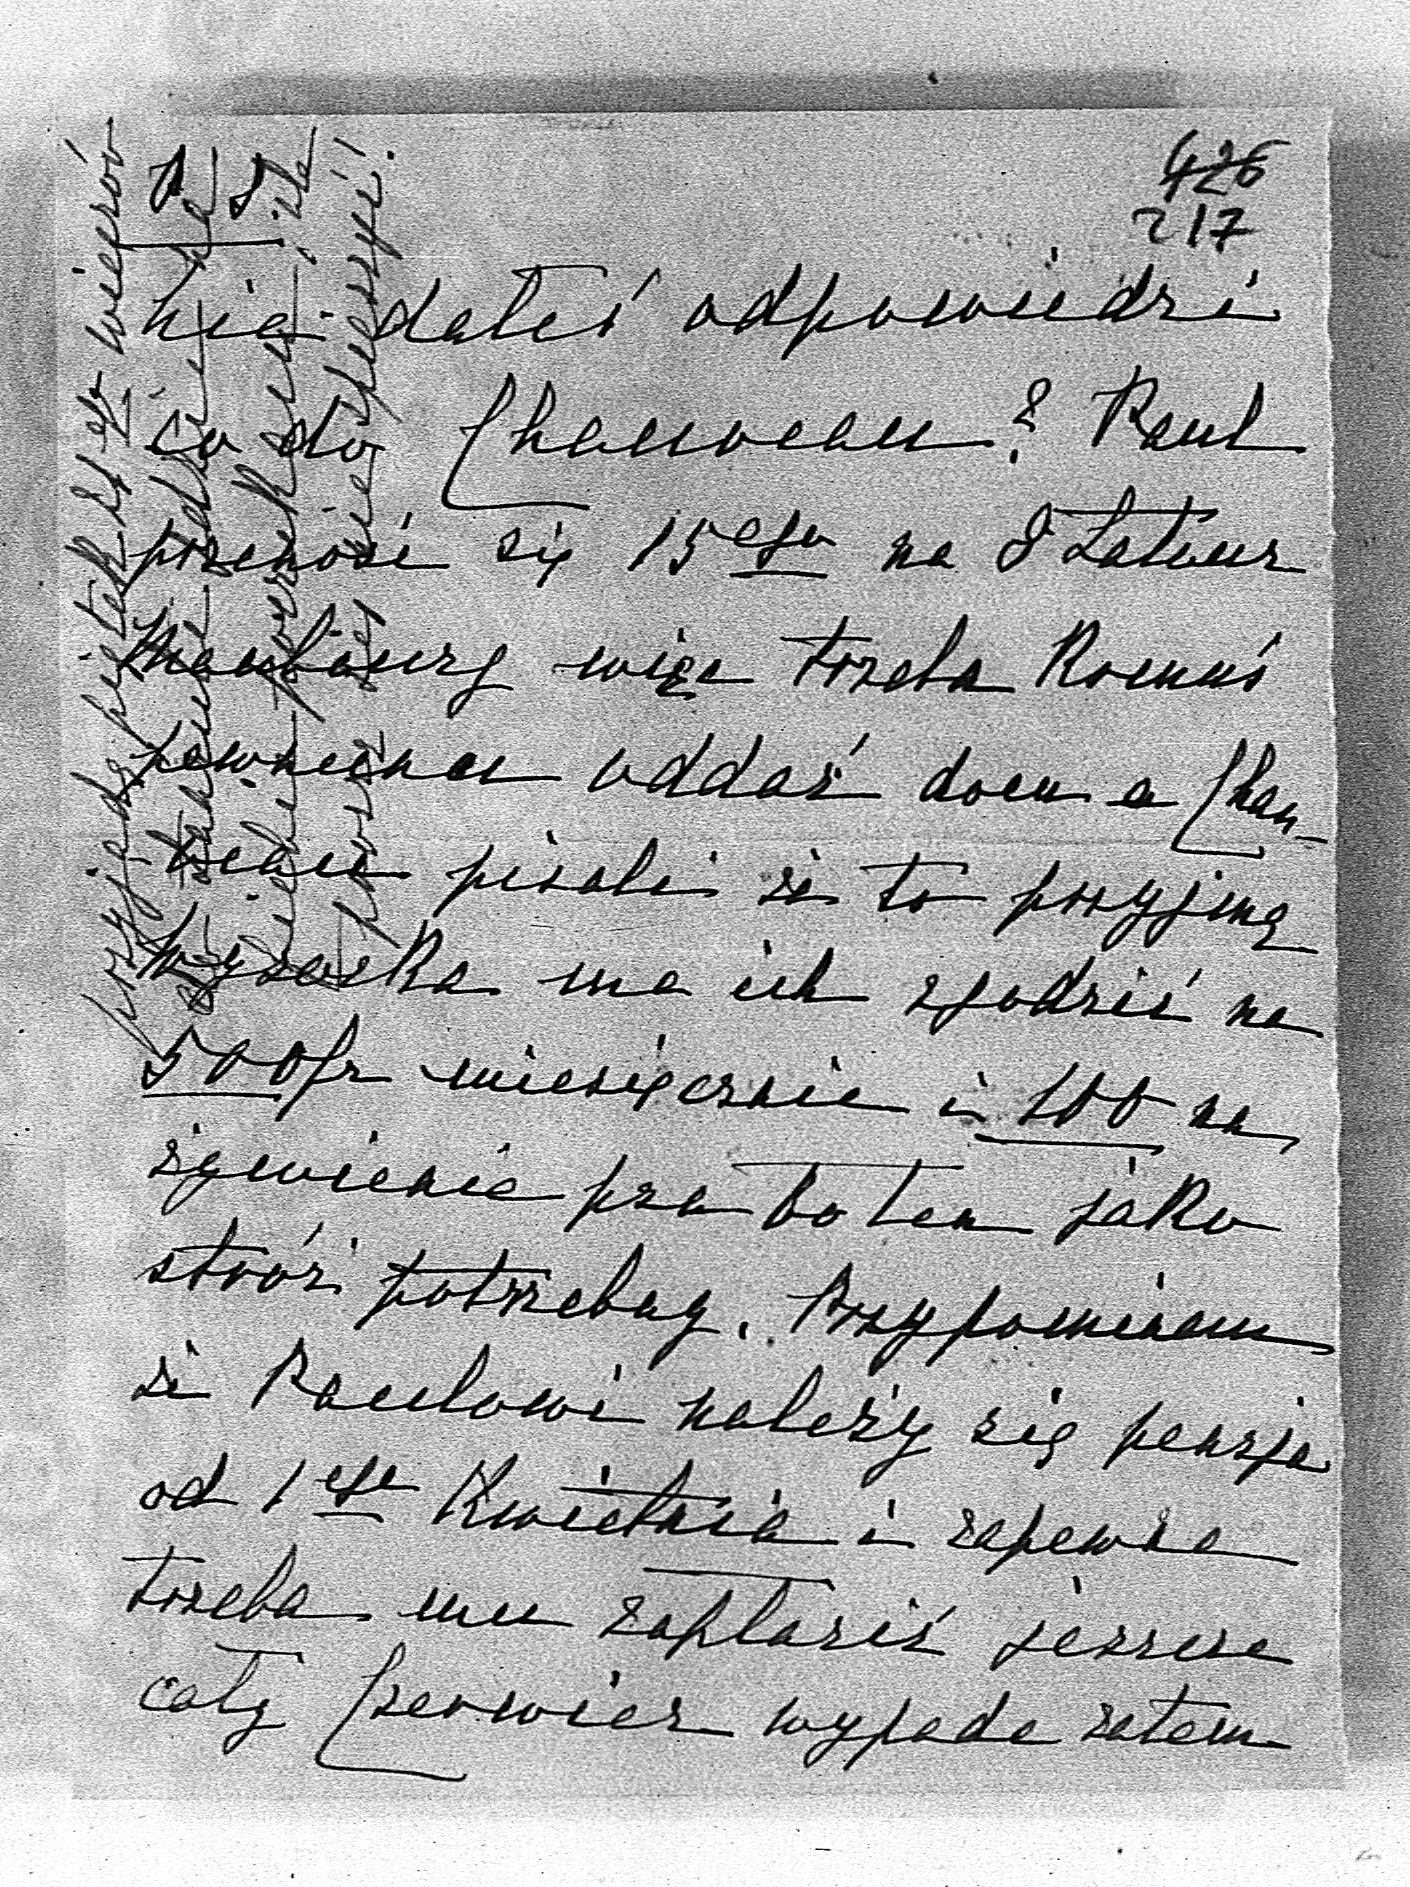 426
217
P. S.
nie dałeś odpowiedzi
co do Chauveau? Raul
przenosi się 15ego na 8 Latour
Maubourg więc trzeba komuś
pewnemu oddać dom a Chau-
veau pisali że to przyjmą
Wysocka ma ich zgodzić na
500 fr miesięcznie i 100 na
żywienie psa bo ten jako
stróż potrzebny. Przypominam
że Raulowi należy się pensja
od 1ego Kwietnia i zapewne
trzeba mu zapłacić jeszcze
cały Czerwiec wypada zatem
przyjadę piątek 21 st. wieczór